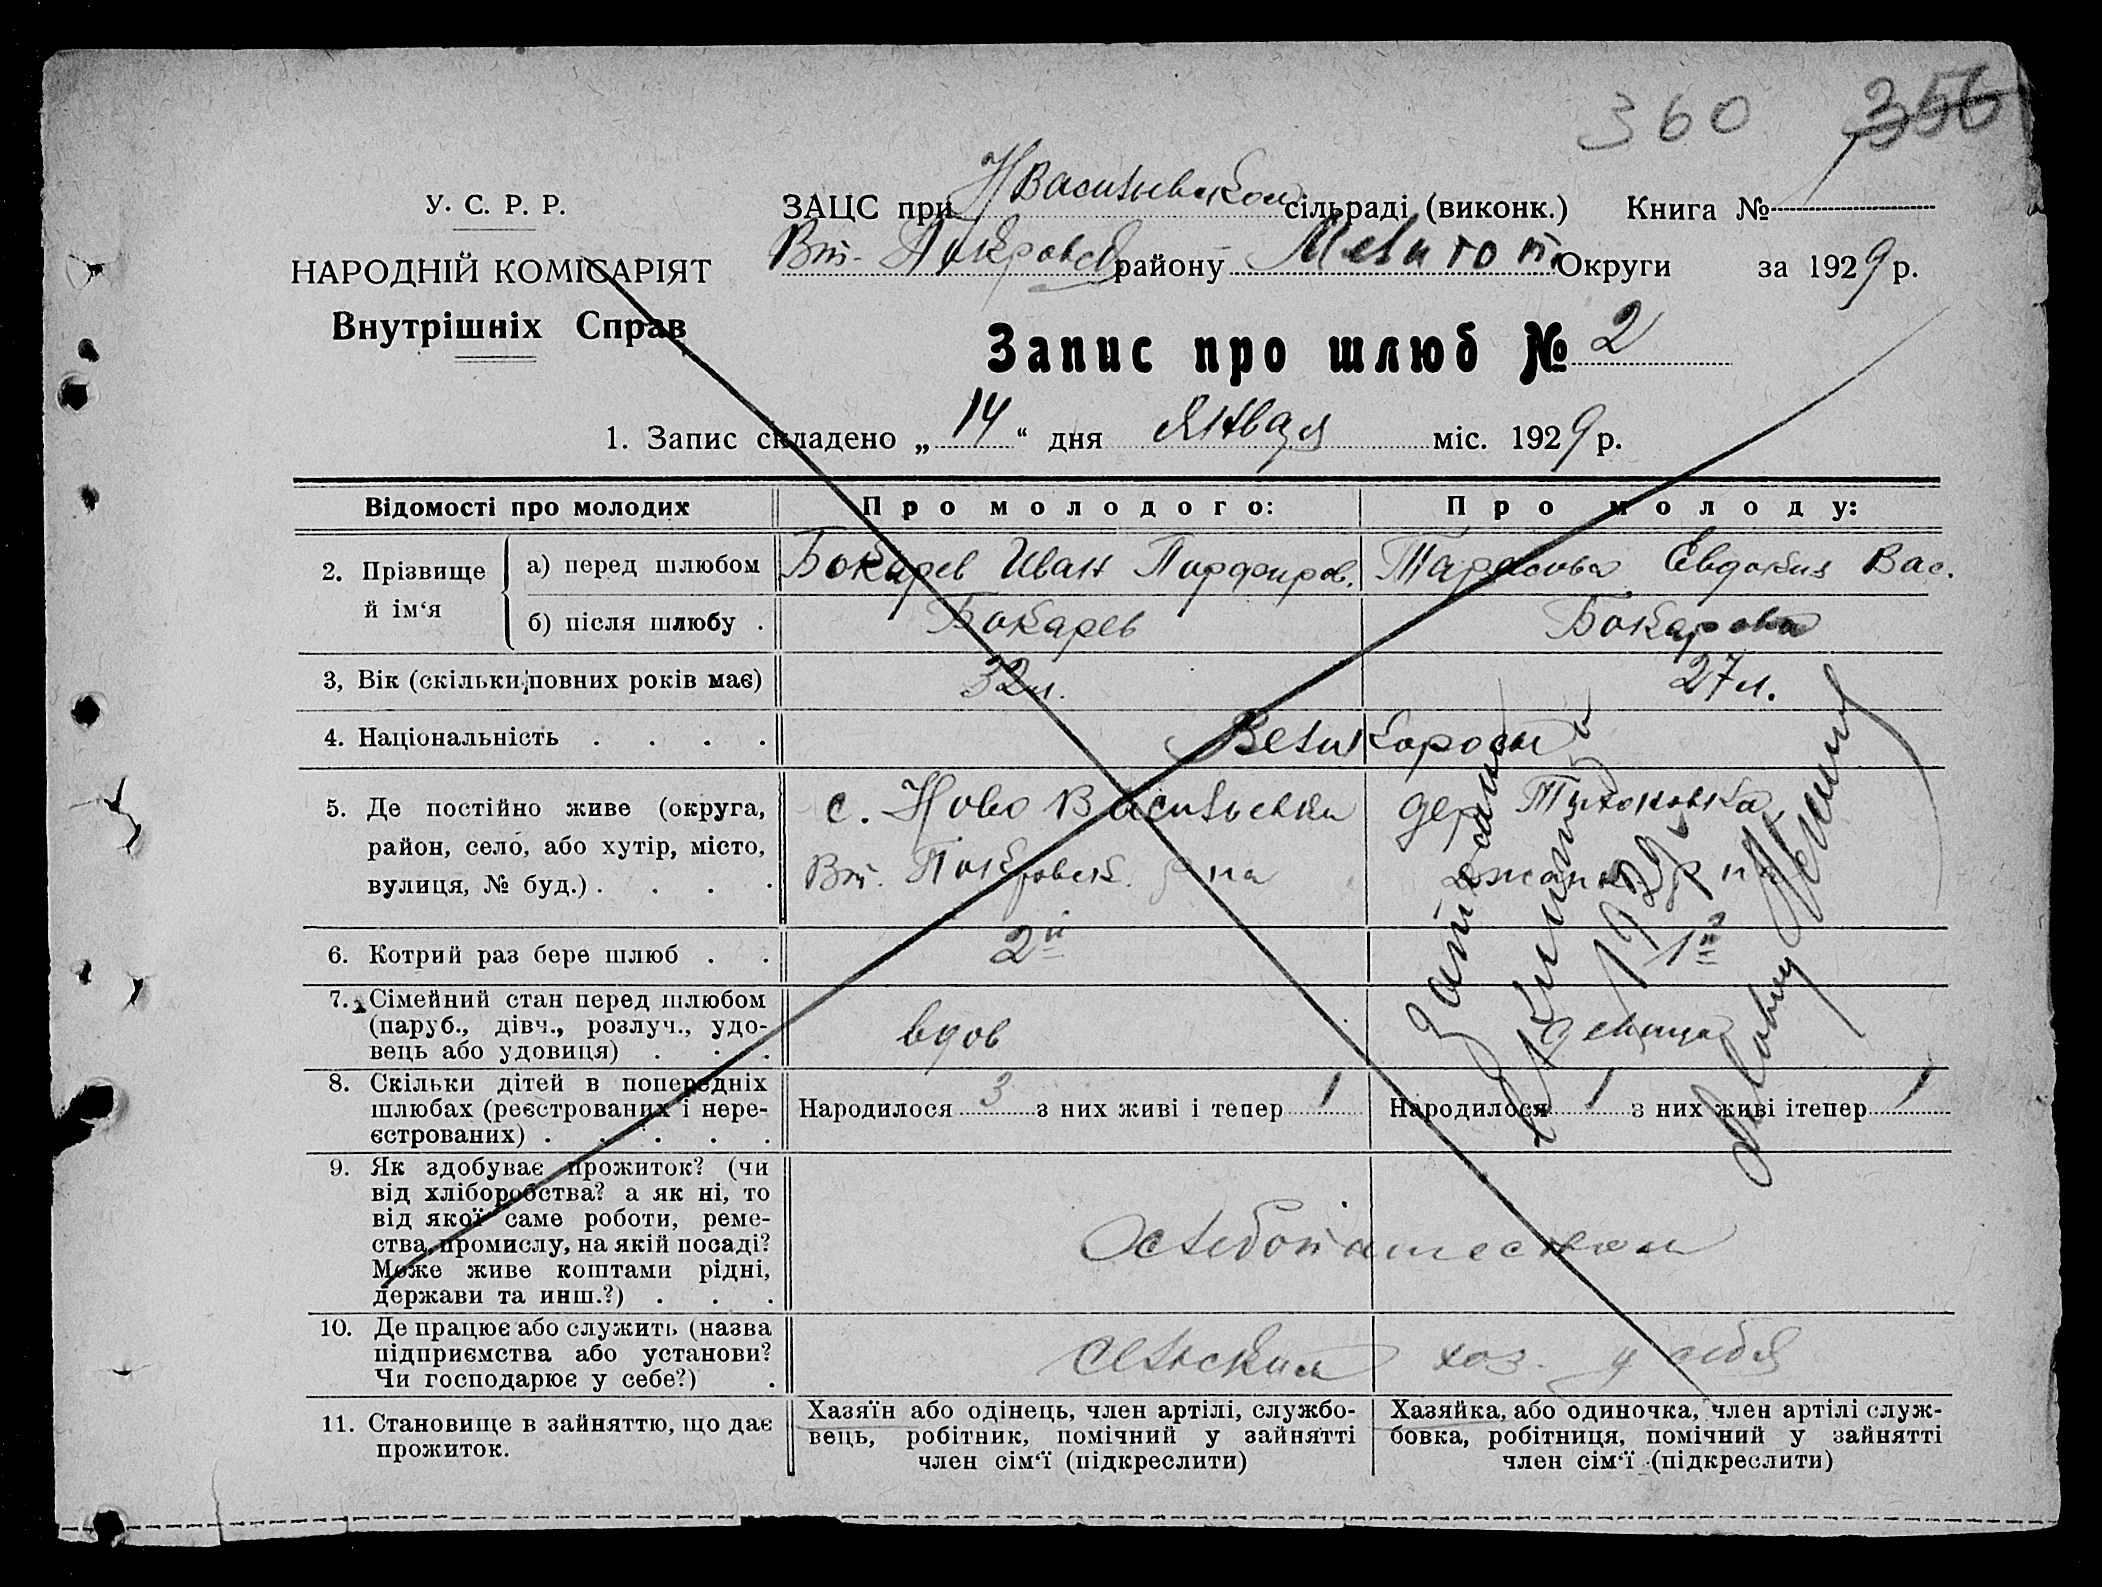 360 356
У. С. Р. Р.
НАРОДНІЙ КОМІСАРІЯТ
Внутрішніх Справ
ЗАЦС при НВасильевском сільраді (виконк.) Книга №
Вт. Покровск району Мелитоп. Округи за 1929 р.
Запис про шлюб № 2
1. Запис складено „ 14 “ дня Января міс. 1929 р.
Відомості про молодих Про молодого: Про молоду:
2. Прізвище й ім‘я
а) перед шлюбом Бокарев Иван Порфиров. Тарасова Евдокия Вас.
б) після шлюбу . Бокарев Бокарова
3, Вік (скільки повних років має) 32 л. 27 л.
4. Національність . . . . Великороссы
5. Де постійно живе (округа, район, село, або хутір, місто, вулиця, № буд.) . . . .
с. Ново Васильевки
Вт. Покровск. р на
дер
р на
6. Котрий раз бере шлюб . . 2й 1й
7. Сімейний стан перед шлюбом
(паруб., дівч., розлуч., удо-
вець або удовиця) . . . вдов девица
8. Скільки дітей в попередніх
шлюбах (реєстрованих і нере-
єстрованих) . . . . .
Народилося 3 з них живі і тепер 1 Народилося 1 з них живі ітепер 1
9. Як здобуває прожиток? (чи
від хліборобства? а як ні, то
від якої саме роботи, реме-
ства, промислу, на якій посаді?
Може живе коштами рідні,
держави та инш.?) . . .
Хлебопашеством
10. Де працює або служить (назва
підприємства або установи?
Чи господарює у себе?) .
сельским хоз. у себя
11. Становище в зайняттю, що дає
прожиток.
Хазяїн або одінець, член артілі, службо-
вець, робітник, помічний у зайнятті
член сім‘ї (підкреслити)
Хазяйка, або одиночка, член артілі служ-
бовка, робітниця, помічний у зайнятті
член сім‘ї (підкреслити)